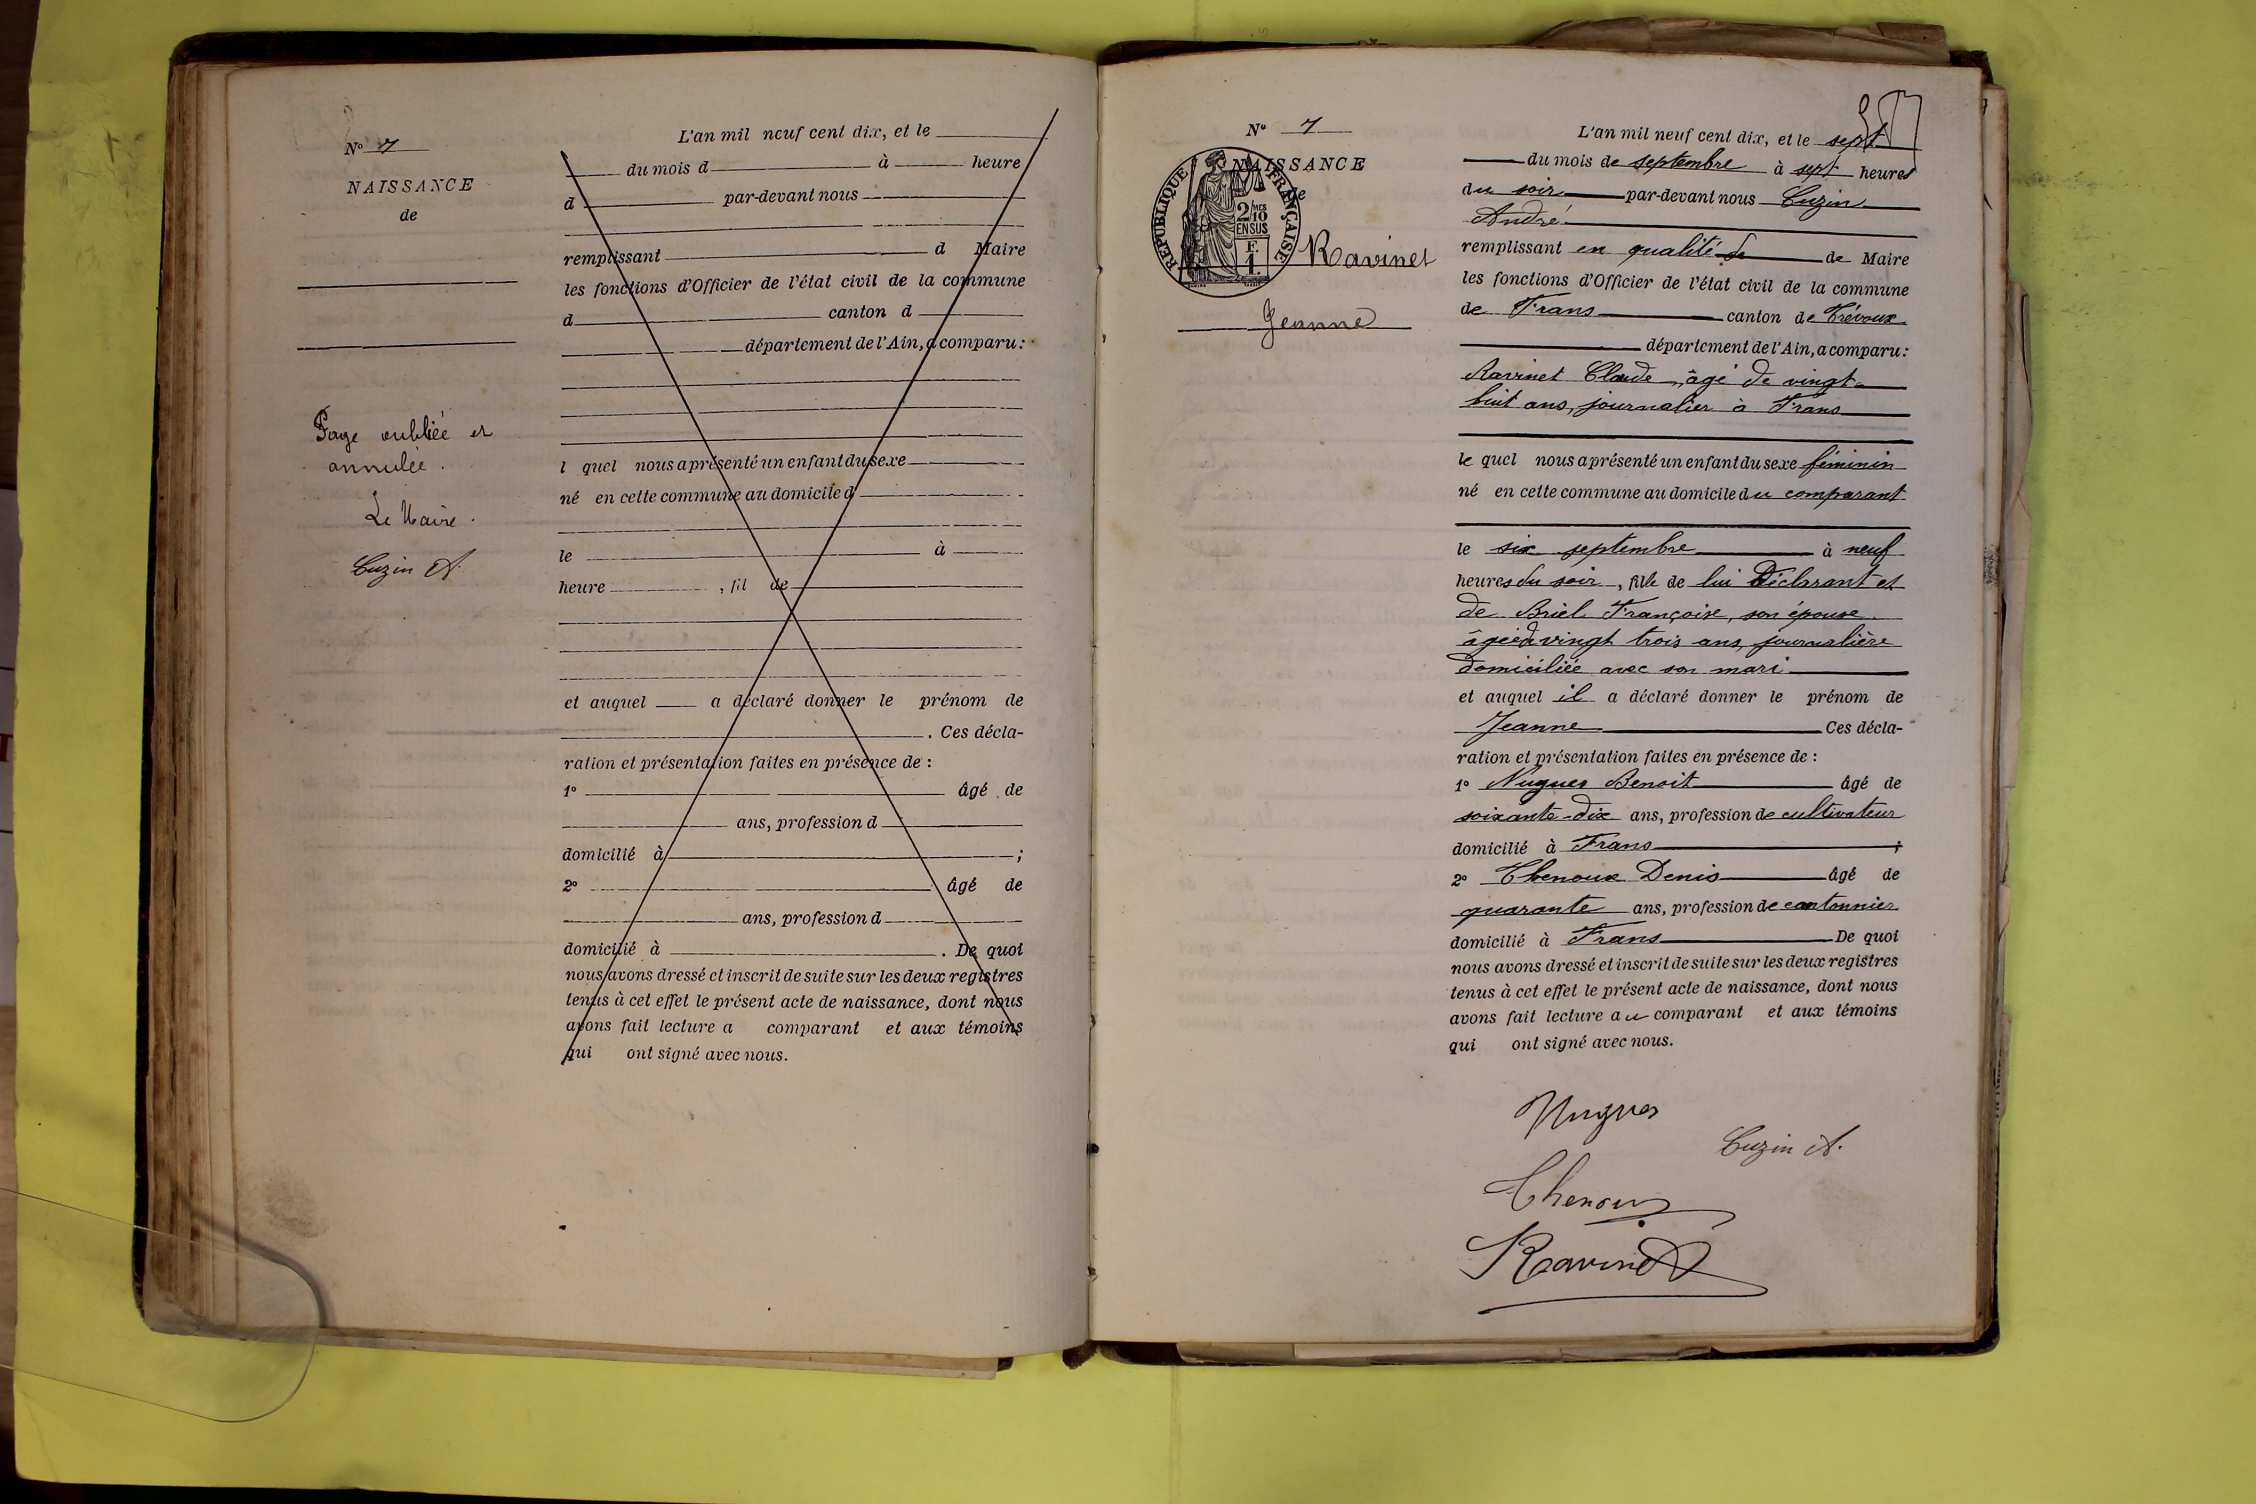 N° 7
NAISSANCE
de
Page oubliée et
annulée.
Le Maire.
Cuzin A.
L'an mil neuf cent dix, et le
du mois d à heure
d par-devant nous
remplissant d Maire
les fonctions d'Officier de l'état civil de la commune
d canton d
département de l'Ain, a comparu:
l quel nous a présenté un enfant du sexe
né en cette commune au domicile d
le à
heure , fil de
et auquel a déclaré donner le prénom de
. Ces décla-
ration et présentation faites en présence de :
1° âgé de
ans, profession d
domicilié à ;
2° âgé de
ans, profession d
domicilié à . De quoi
nous avons dressé et inscrit de suite sur les deux registres
tenus à cet effet le présent acte de naissance, dont nous
avons fait lecture a comparant et aux témoins
qui ont signé avec nous.
N° 7
NAISSANCE
de
RÉPUBLIQUE FRANÇAISE
2/MES
10
EN SUS
F.
1.
Ravinet
Jeanne
L'an mil neuf cent dix, et le sept
du mois de septembre à sept heures
du soir par-devant nous Cuzin
André
remplissant en qualité de de Maire
les fonctions d'Officier de l'état civil de la commune
de Frans canton de Trévoux
département de l'Ain, a comparu:
Ravinet Claude, âgé de vingt-
huit ans, journalier à Frans
le quel nous a présenté un enfant du sexe féminin
né en cette commune au domicile du comparant
le six septembre à neuf
heures du soir, fille de lui Déclarant et
de Briel Françoise, son épouse
âgée de vingt trois ans, journalière
domiciliée avec son mari
et auquel il a déclaré donner le prénom de
Jeanne Ces décla-
ration et présentation faites en présence de :
1° Nugues Benoit âgé de
soixante-dix ans, profession de cultivateur
domicilié à Frans ;
2° Chenoux Denis âgé de
quarante ans, profession de cantonnier
domicilié à Frans De quoi
nous avons dressé et inscrit de suite sur les deux registres
tenus à cet effet le présent acte de naissance, dont nous
avons fait lecture au comparant et aux témoins
qui ont signé avec nous.
Nugues
Cuzin A.
Chenoux
Ravinet